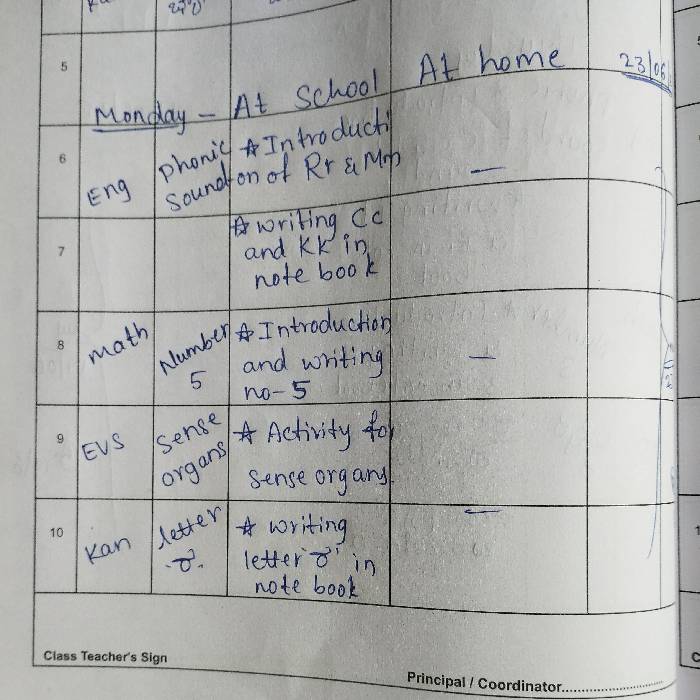 5
Monday - At School At home 23/06
6 Eng Phonic Sound ☆ Introducti
on of Rr & Mm —
7 ☆ writing Cc
and KK in
note book
8 math Number 5 ☆ Introduction
and writing
no-5 —
9 EVS Sense organs ☆ Activity for
sense organs.
—
10 Kan letter ☆ writing
letter in
note book
Class Teacher's Sign
Principal / Coordinator